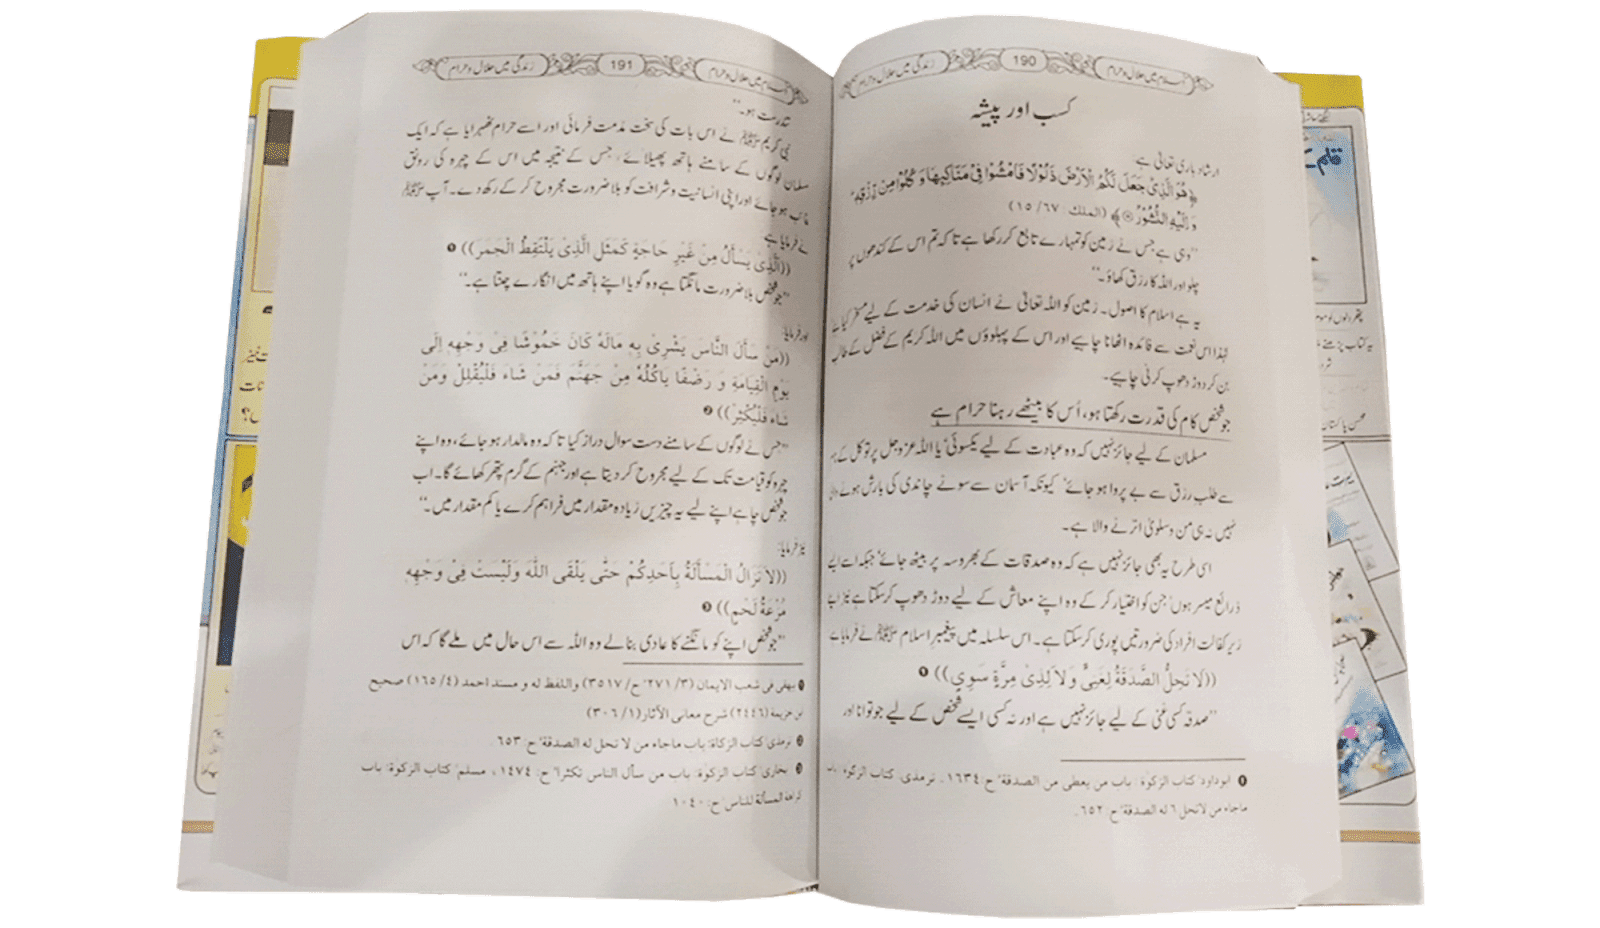 اسلام میں حلال و حرام 190 زندگی میں حلال و حرام
کسب اور پیشہ
ارشاد باری تعالیٰ ہے:
﴿هُوَ الَّذِیْ جَعَلَ لَكُمُ الْاَرْضَ ذَلُوْلًا فَامْشُوْا فِیْ مَنَاكِبِهَا وَ كُلُوْا مِنْ رِّزْقِهٖ ؕ
وَ اِلَیْهِ النُّشُوْرُ﴾ (الملك: ۶۷/ ۱۵)
"وہی ہے جس نے زمین کو تمہارے تابع کر رکھا ہے تاکہ تم اس کے کندھوں پر
چلو اور اللہ کا رزق کھاؤ۔"
یہ ہے اسلام کا اصول۔ زمین کو اللہ تعالیٰ نے انسان کی خدمت کے لیے مسخر کیا ہے
لہٰذا اس نعمت سے فائدہ اٹھانا چاہیے اور اس کے پہلوؤں میں اللہ کریم کے فضل کے طالب
بن کر دوڑ دھوپ کرنی چاہیے۔
جو شخص کام کی قدرت رکھتا ہو، اُس کا بیٹھے رہنا حرام ہے
مسلمان کے لیے جائز نہیں کہ وہ عبادت کے لیے یکسوئی یا اللہ عزوجل پر توکل کے
سے طلب رزق سے بے پروا ہو جائے' کیونکہ آسمان سے سونے چاندی کی بارش ہونے والی
نہیں نہ ہی من و سلویٰ اترنے والا ہے۔
اسی طرح یہ بھی جائز نہیں ہے کہ وہ صدقات کے بھروسہ پر بیٹھ جائے' جبکہ اسے ایسے
ذرائع میسر ہوں' جن کو اختیار کر کے وہ اپنے معاش کے لیے دوڑ دھوپ کر سکتا ہے نیز اپنے
زیر کفالت افراد کی ضرورتیں پوری کر سکتا ہے۔ اس سلسلہ میں پیغمبر اسلام ﷺ نے فرمایا ہے
((لَا تَحِلُّ الصَّدَقَةُ لِغَنِيٍّ وَ لَا لِذِىْ مِرَّةٍ سَوِيٍ)) ❶
"صدقہ کسی غنی کے لیے جائز نہیں ہے اور نہ کسی ایسے شخص کے لیے جو توانا اور
❶ ابوداود' کتاب الزکوٰة: باب من یعطی من الصدقة' ح ۱۶۳۴۔ ترمذی، کتاب الزکوٰة باب
ماجاء من لا تحل له الصدقة' ح: ۶۵۲۔
اسلام میں حلال و حرام 191 زندگی میں حلال و حرام
تندرست ہو۔"
نبی کریم ﷺ نے اس بات کی سخت مذمت فرمائی اور اسے حرام ٹھہرایا ہے کہ ایک
مسلمان لوگوں کے سامنے ہاتھ پھیلائے' جس کے نتیجہ میں اس کے چہرہ کی رونق
غائب ہو جائے اور اپنی انسانیت و شرافت کو بلا ضرورت مجروح کر کے رکھ دے۔ آپ ﷺ
نے فرمایا ہے
((اَلَّذِىْ يَسْأَلُ مِنْ غَيْرِ حَاجَةٍ كَمَثَلِ الَّذِىْ يَلْتَقِطُ الْجَمَرَ)) ❶
"جو شخص بلا ضرورت مانگتا ہے وہ گویا اپنے ہاتھ میں انگارے چنتا ہے۔"
اور فرمایا:
((مَنْ سَأَلَ النَّاسَ يَثْرِىَ بِهٖ مَالَهٗ كَانَ خَمُوْشًا فِىْ وَجْهِهٖ إِلَى
يَوْمِ الْقِيَامَةِ وَ رَضْفًا يَاكُلُهٗ مِنْ جَهَنَّمَ فَمَنْ شَاءَ فَلْيُقْلِلْ وَمَنْ
شَاءَ فَلْيُكْثِرْ)) ❷
"جس نے لوگوں کے سامنے دست سوال دراز کیا تاکہ وہ مالدار ہو جائے، وہ اپنے
چہرہ کو قیامت تک کے لیے مجروح کر دیتا ہے اور جہنم کے گرم پتھر کھائے گا۔ اب
جو شخص چاہے اپنے لیے یہ چیزیں زیادہ مقدار میں فراہم کرے یا کم مقدار میں۔"
نیز فرمایا:
((لَا تَزَالُ الْمَسْأَلَةُ بِاَحَدِكُمْ حَتّٰى يَلْقَى اللّٰهَ وَلَيْسَتْ فِىْ وَجْهِهٖ
مُزْعَةُ لَحْمٍ)) ❸
"جو شخص اپنے کو مانگنے کا عادی بنا لے وہ اللہ سے اس حال میں ملے گا کہ اس
❶ بیهقی فی شعب الایمان (۳/ ۲۷۱' ح/ ۳۵۱۷) واللفظ له و مسند احمد (۴/ ۱۶۵) صحیح
ابن خزیمة (۲۴۴۶) شرح معانی الآثار (۱/ ۳۰۶)
❷ ترمذی' کتاب الزکاة: باب ماجاء من لا تحل له الصدقة' ح: ۶۵۳۔
❸ بخاری' کتاب الزکوٰة: باب من سأل الناس تکثرا' ح: ۱۴۷۴، مسلم' کتاب الزکوٰة: باب
کراهة المسألة للناس' ح: ۱۰۴۰